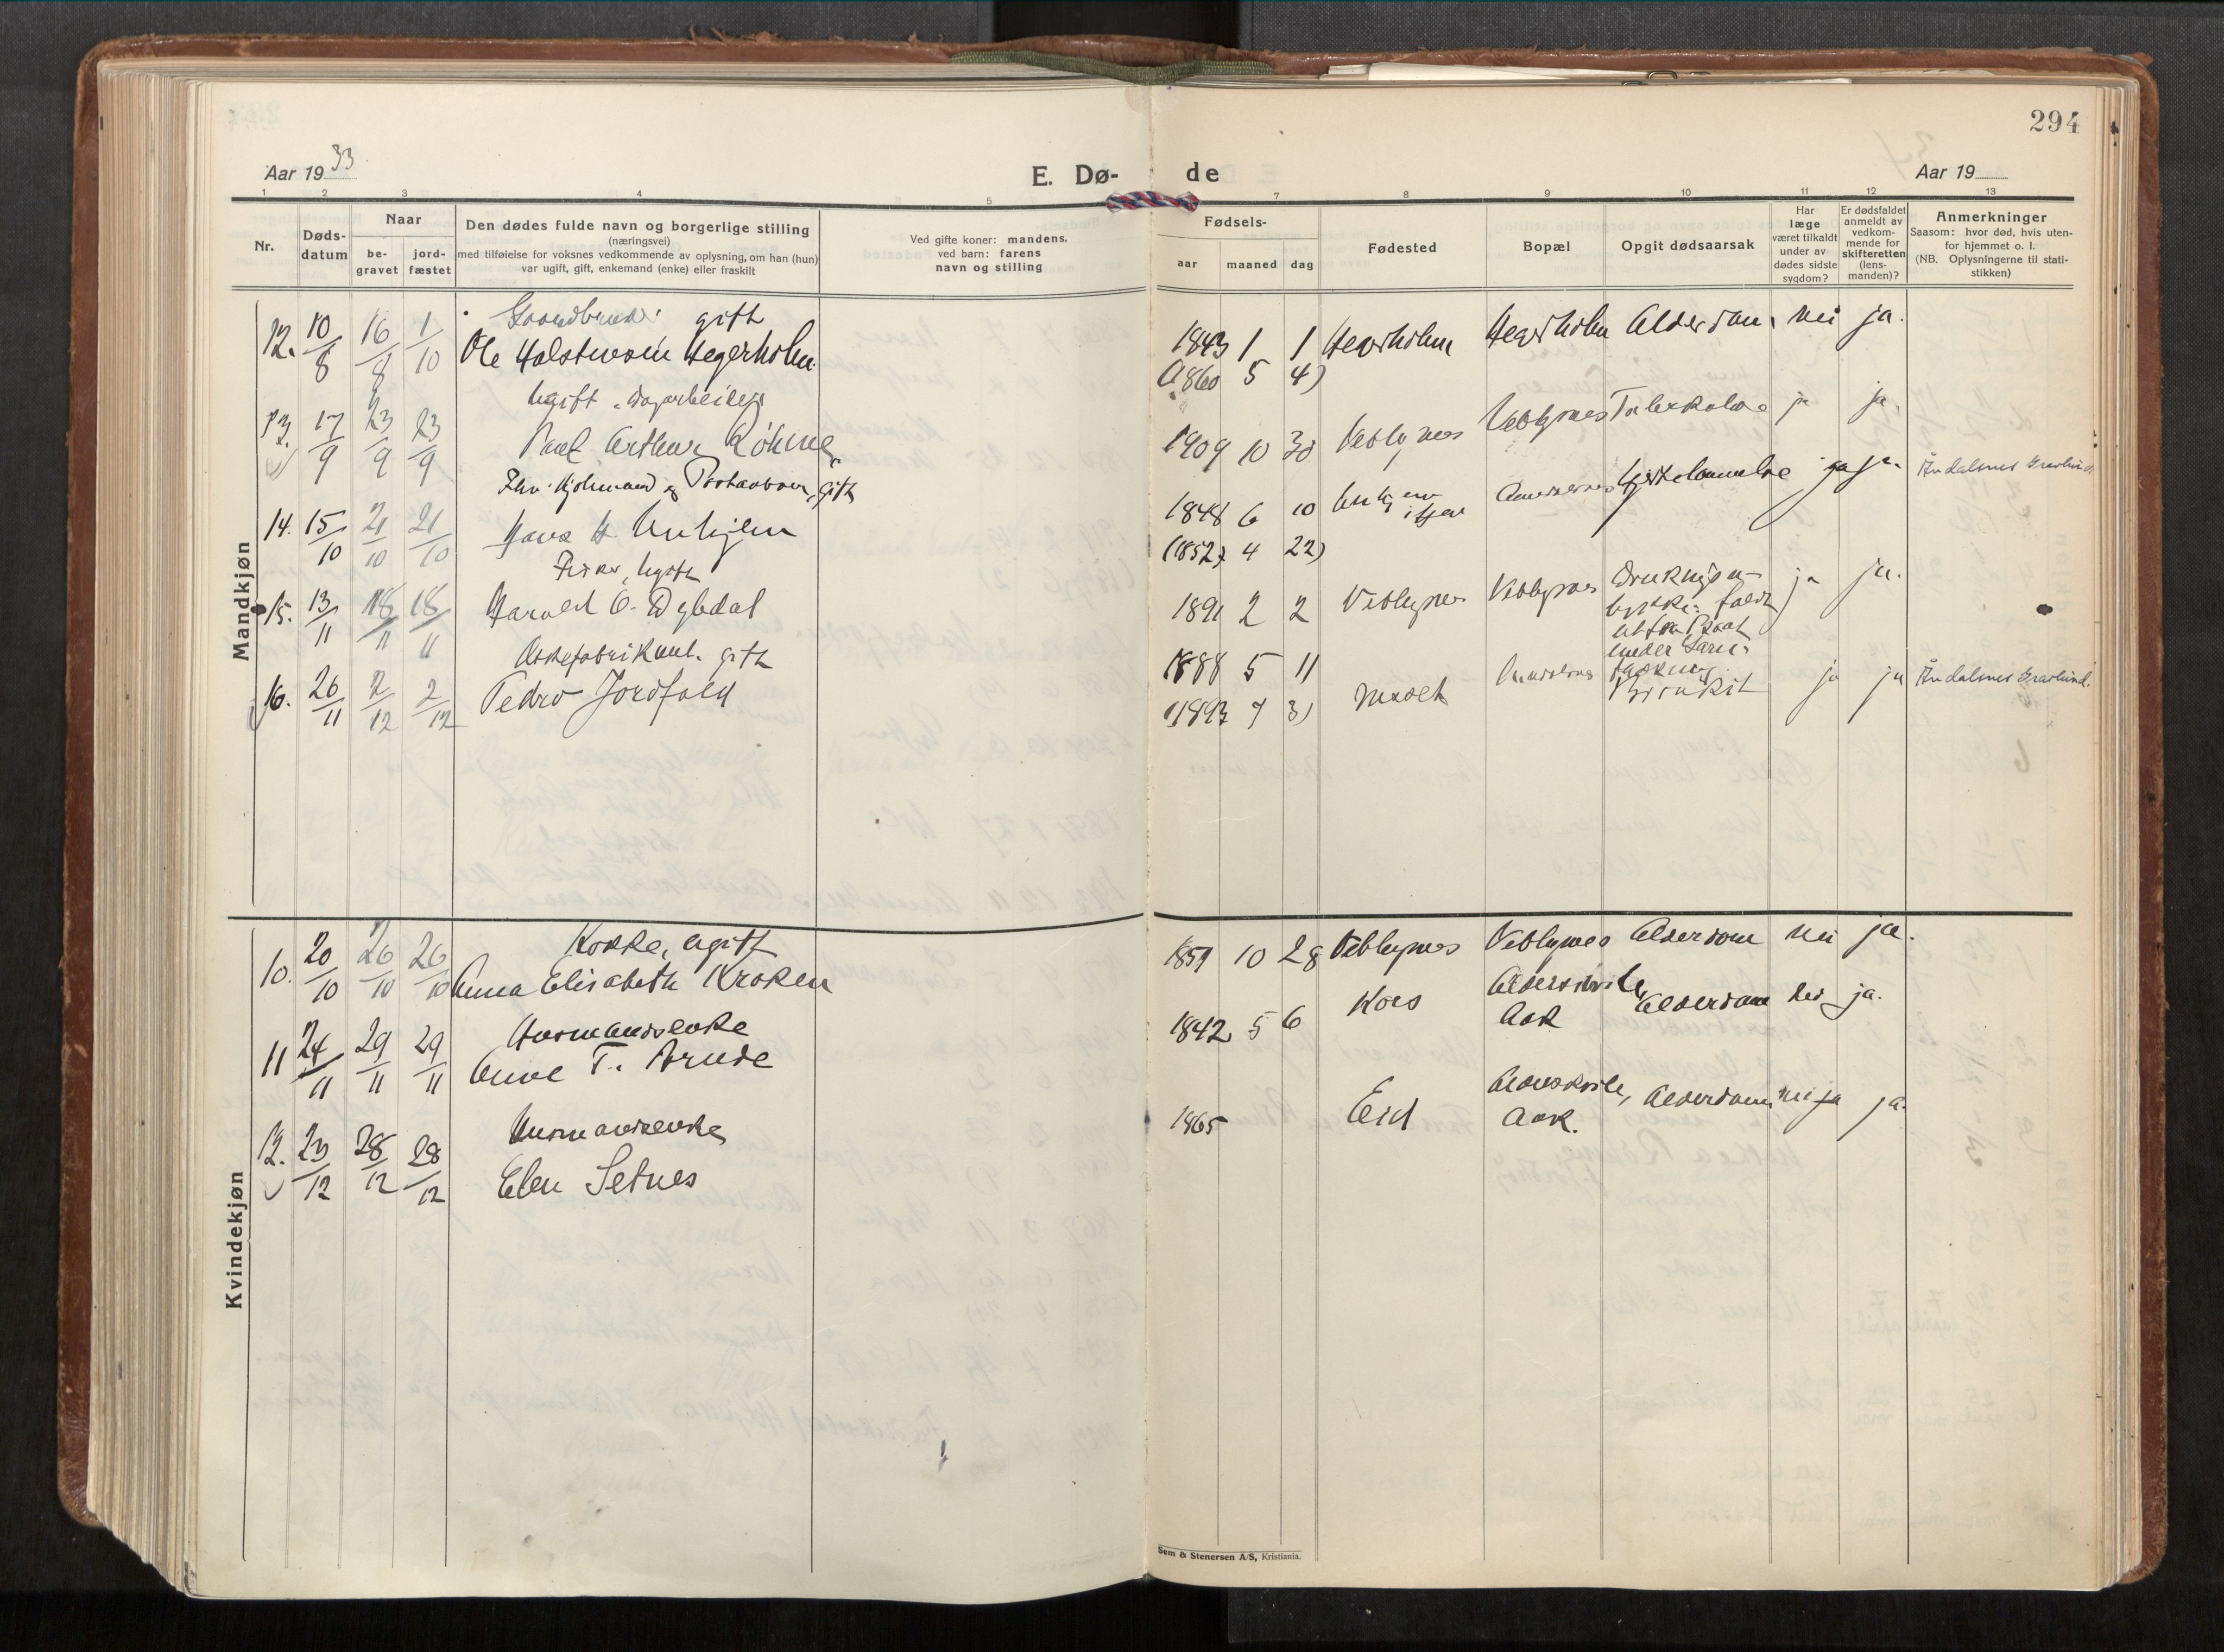 294
Aar 19 33.
E. Dø- de
Aar 19
1 2 3 4 5 7 8 9 10 11 12 13
Nr.
Døds-
datum
Naar
be-
gravet
jord-
fæstet
Den dødes fulde navn og borgerlige stilling
(næringsvei)
med tilføielse for voksnes vedkommende av oplysning, om han (hun)
var ugift, gift, enkemand (enke) eller fraskilt
Ved gifte koner: mandens,
ved barn: farens
navn og stilling
Fødsels-
aar maaned dag
Fødested
Bopæl
Opgit dødsaarsak
Har
læge
været tilkaldt
under av-
dødes sidste
sygdom?
Er dødsfaldet
anmeldt av
vedkom-
mende for
skifteretten
(lens-
manden)?
Anmerkninger
Saasom: hvor død, hvis uten-
for hjemmet o. l.
(NB. Oplysningerne til stati-
stikken)
Mandkjøn
gift
12. 10/8 16/8 1/10 Ole Halstensen Hegerholm. 1843 1 1 Hegerholm Hegerholm Alderdom. nei ja.
(1860 5 4)
Ugift. Dagarbeider
13. 17/9 23/9 23/9 Paul Arthur Röhme. 1909 10 30 Veblugnes Veblugnes Tuberkulose ja ja.
Fhv. Kjøbmand og Postaabner, gift
14. 15/10 21/10 21/10 Hans H. Unhjem 1848 6 10 Aandalsnes Hjertelammelse ja ja. Åndalsnes Gravlund.
(1852 4 22)
Fisker, Ugift
15. 13/11 18/11 18/11 Harald O. Dybdal 1891 2 2 Veblugnes Veblugnes Drukning ja ja.
ut fra Baat
under
gift
16. 26/11 2/12 2/12 Pedro Jordfald 1888 5 11 Molde Aandalsnes Bronkit ja ja Åndalsnes Gravlund.
(1893 7 3)
Kvindekjøn
Kokke, ugift
10. 20/10 26/10 26/10 Anna Elisabeth Kroken 1859 10 28 Veblugnes Veblugnes Alderdom nei ja.
Husmandsenke
11 24/11 29/11 29/11 Anne T. Brude 1842 5 6 Kors Aldershvile, Aak Alderdom nei ja.
Husmandsenke
12. 23/12 28/12 28/12 Elen Setnes 1865 Eid Aldershvile, Aak. Alderdom nei ja ja.
Sem & Stenersen A/S, Kristiania.